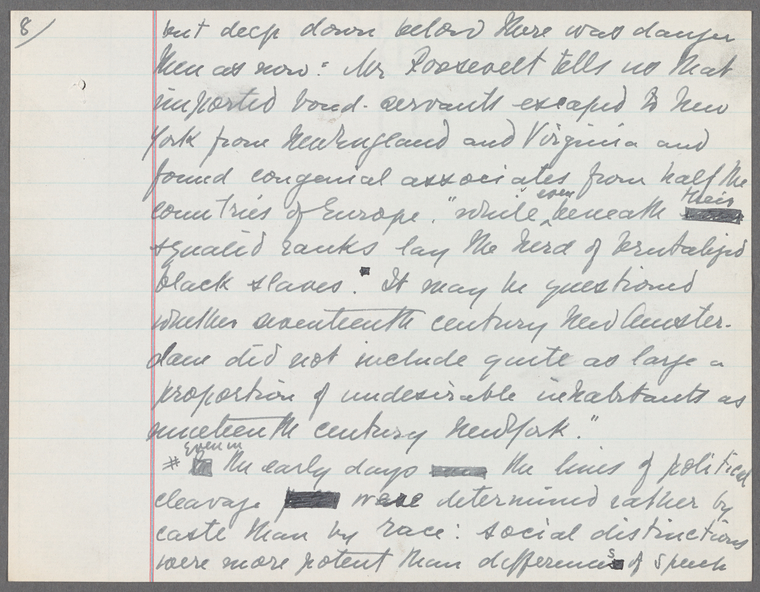 8/
but deep down below there was danger
then as now: Mr Roosevelt tells us that
imported bond-servants escaped to New
York from New England and Virginia and
found congenial associates from half the
countries of Europe. "while even beneath their
squalid ranks lay the herd of brutalized
black slaves. It may be questioned
whether seventeenth century New Amster-
dam did not include quite as large a
proportion of undesirable inhabitants as
nineteenth century New York."
* Even in the early days the lines of political
cleavage were determined rather by
caste than by race: social distinctions
were more potent than differences of speech